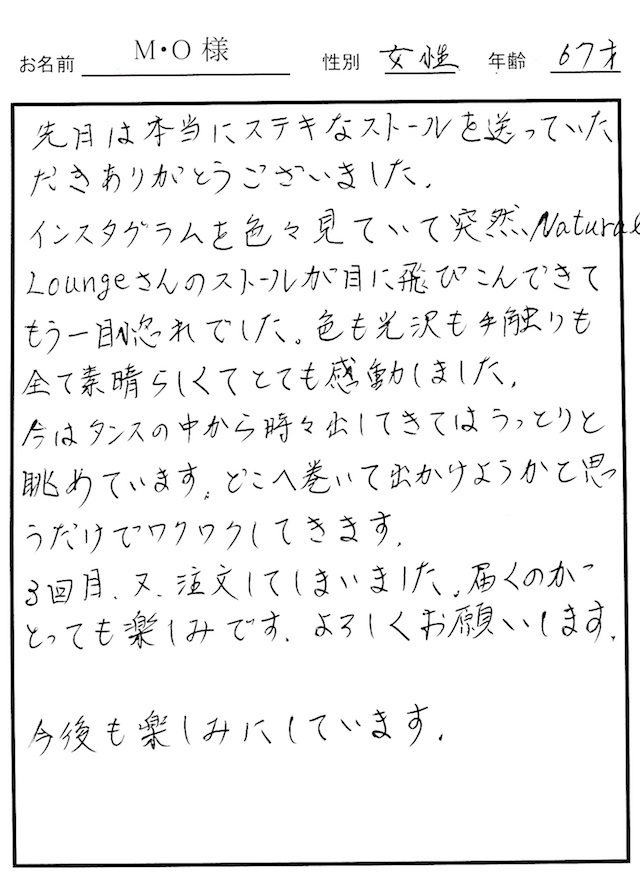 お名前 M・O 様 性別 女性 年齢 67才
先月は本当にステキなストールを送っていた
だきありがとうございました。
インスタグラムを色々見ていて突然、Natural
Loungeさんのストールが目に飛びこんできて
もう一目惚れでした。色も光沢も手触りも
全て素晴らしくてとても感動しました。
今はタンスの中から時々出してきてはうっとりと
眺めています。どこへ巻いて出かけようかと思
うだけでワクワクしてきます。
3回目、又、注文してしまいました。届くのが
とっても楽しみです。よろしくお願いします。
今後も楽しみにしています。